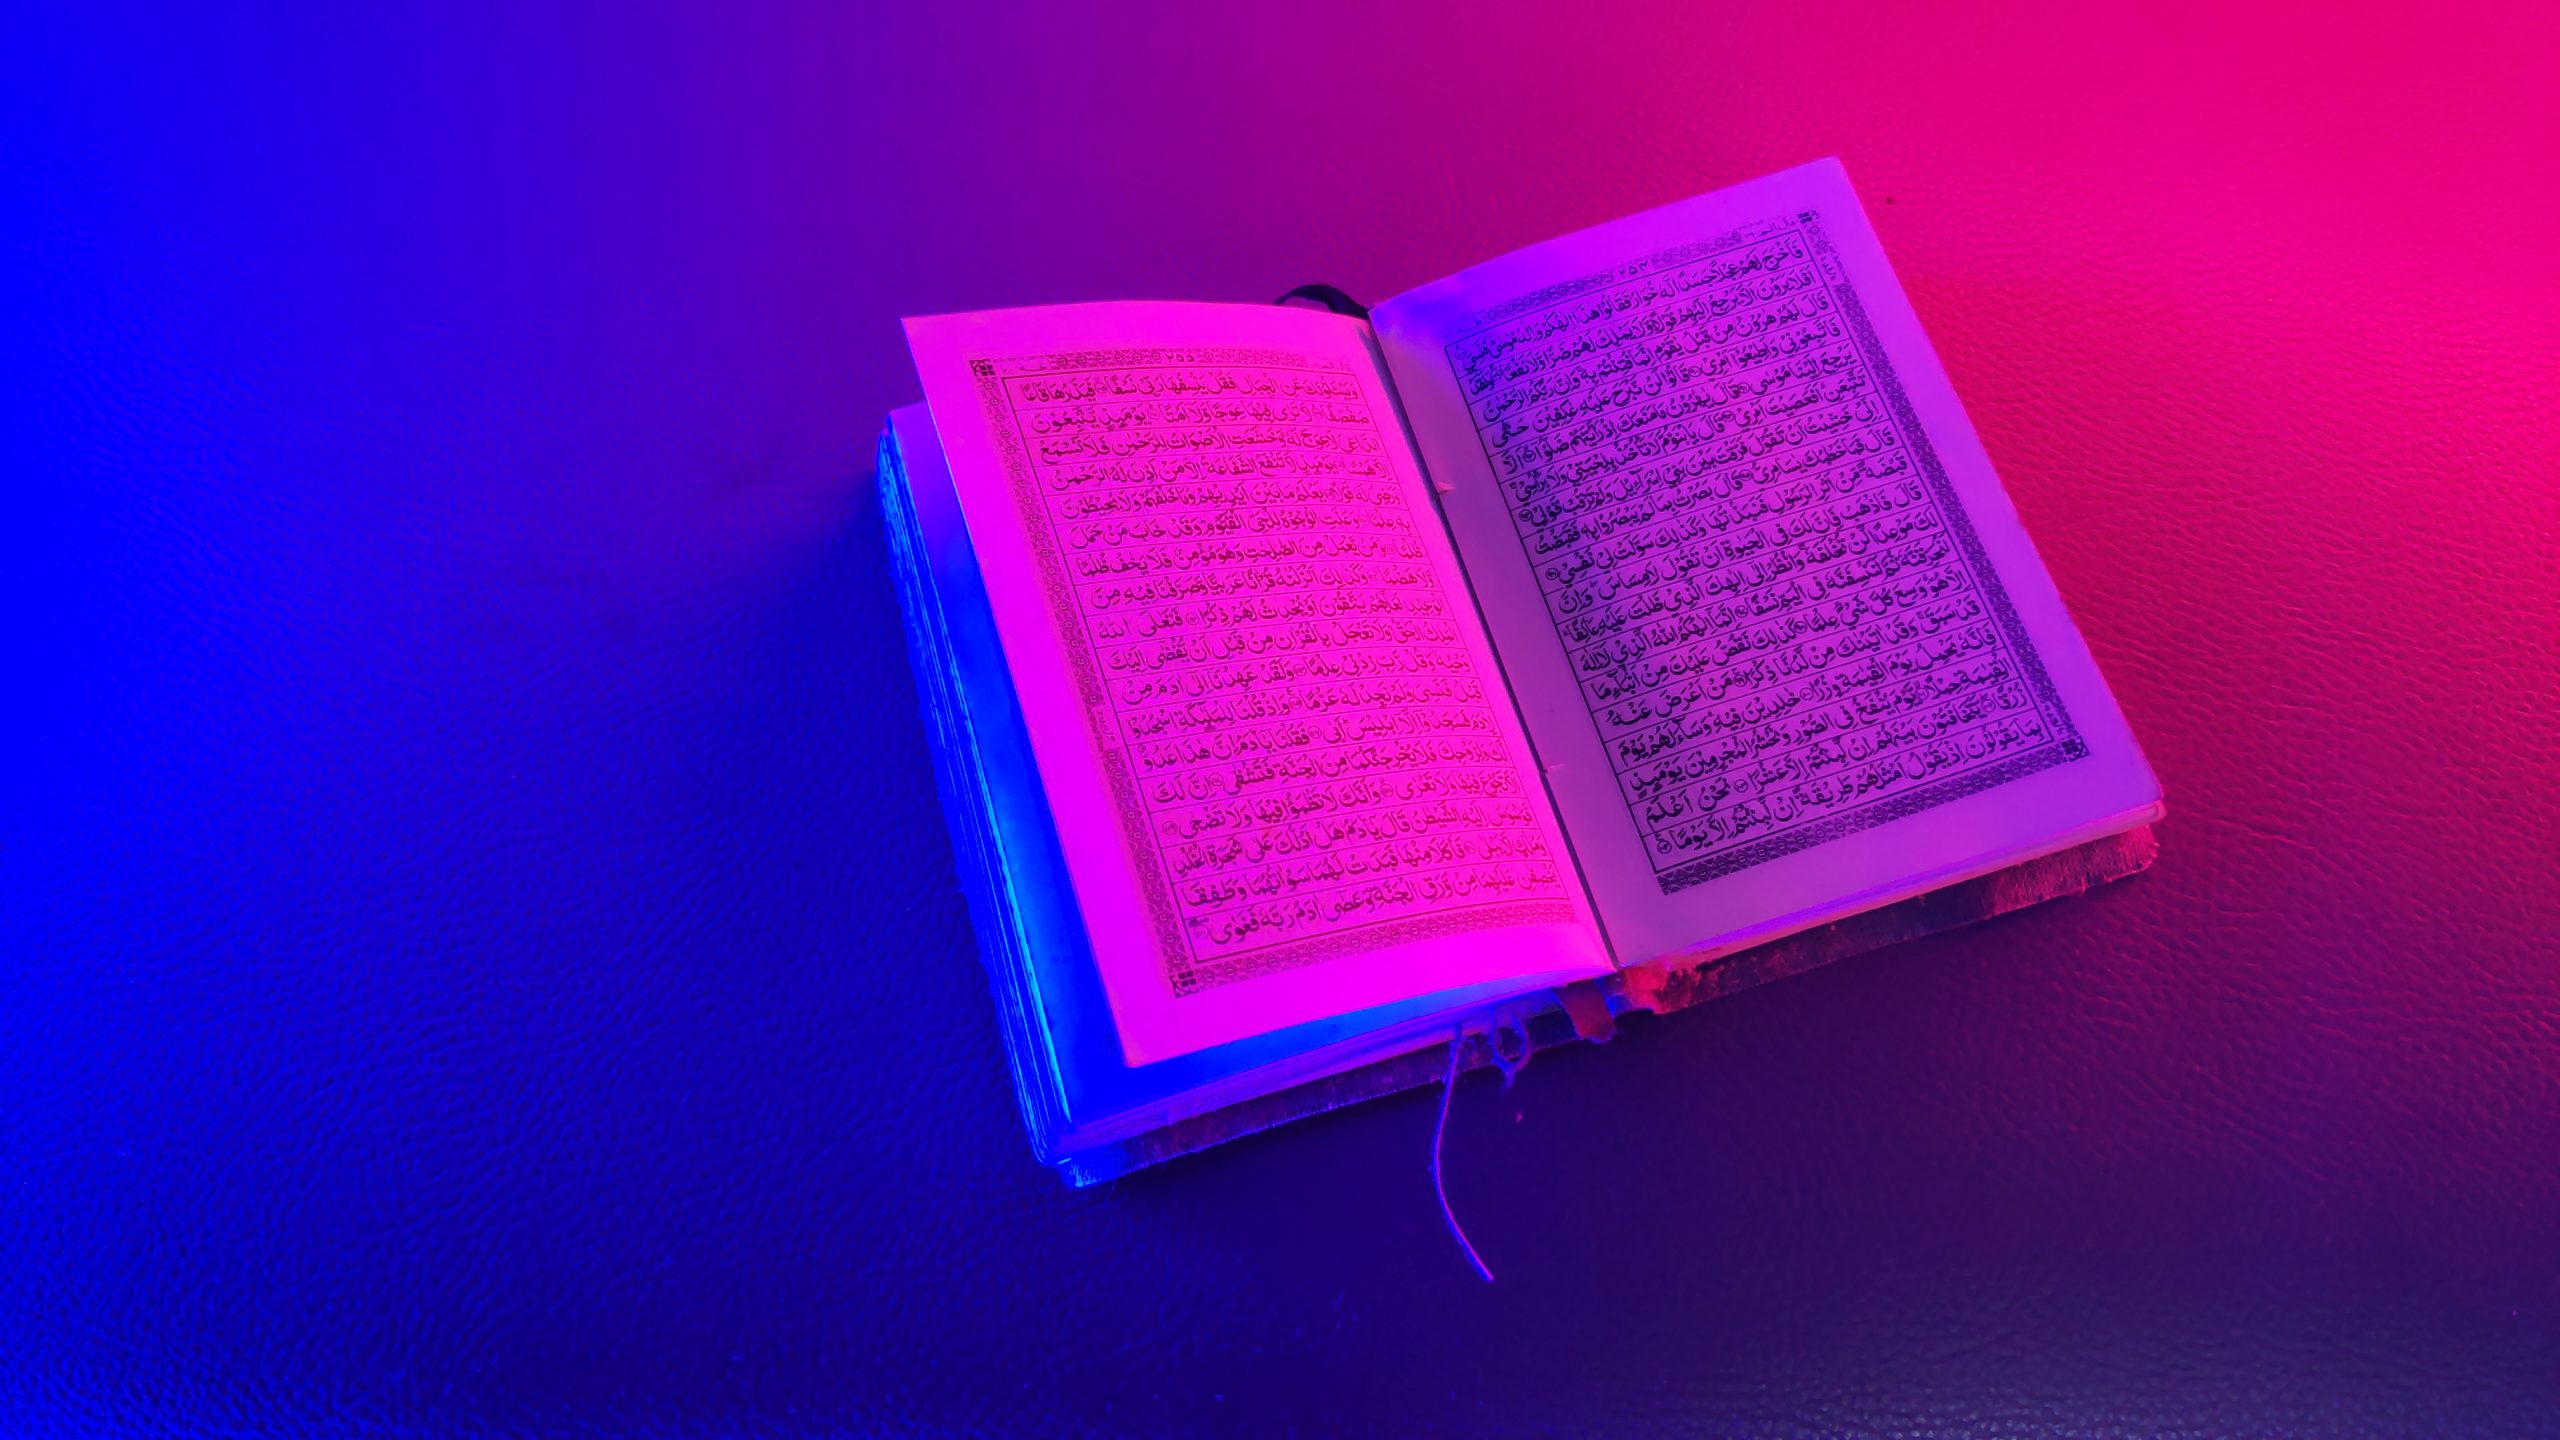 ٢٥٤
فَاَخْرَجَ لَهُمْ عِجْلًا جَسَدًا لَّهٗ خُوَارٌ فَقَالُوْا هٰذَآ اِلٰهُكُمْ وَاِلٰهُ مُوْسٰى فَنَسِيَ
اَفَلَا يَرَوْنَ اَلَّا يَرْجِعُ اِلَيْهِمْ قَوْلًا وَّلَا يَمْلِكُ لَهُمْ ضَرًّا وَّلَا نَفْعًا وَلَقَدْ
قَالَ لَهُمْ هٰرُوْنُ مِنْ قَبْلُ يٰقَوْمِ اِنَّمَا فُتِنْتُمْ بِهٖ وَاِنَّ رَبَّكُمُ الرَّحْمٰنُ
فَاتَّبِعُوْنِيْ وَاَطِيْعُوْٓا اَمْرِيْ ۹۰ قَالُوْا لَنْ نَّبْرَحَ عَلَيْهِ عٰكِفِيْنَ حَتّٰى
يَرْجِعَ اِلَيْنَا مُوْسٰى ۹۱ قَالَ يٰهٰرُوْنُ مَا مَنَعَكَ اِذْ رَاَيْتَهُمْ ضَلُّوْٓا ۹۲ اَلَّا
تَتَّبِعَنِ اَفَعَصَيْتَ اَمْرِيْ ۹۳ قَالَ يَبْنَؤُمَّ لَا تَاْخُذْ بِلِحْيَتِيْ وَلَا بِرَاْسِيْ
اِنِّيْ خَشِيْتُ اَنْ تَقُوْلَ فَرَّقْتَ بَيْنَ بَنِيْٓ اِسْرَآءِيْلَ وَلَمْ تَرْقُبْ قَوْلِيْ ۹۴
قَالَ فَمَا خَطْبُكَ يٰسَامِرِيُّ ۹۵ قَالَ بَصُرْتُ بِمَا لَمْ يَبْصُرُوْا بِهٖ فَقَبَضْتُ
قَبْضَةً مِّنْ اَثَرِ الرَّسُوْلِ فَنَبَذْتُهَا وَكَذٰلِكَ سَوَّلَتْ لِيْ نَفْسِيْ ۹۶
قَالَ فَاذْهَبْ فَاِنَّ لَكَ فِي الْحَيٰوةِ اَنْ تَقُوْلَ لَا مِسَاسَ وَاِنَّ
لَكَ مَوْعِدًا لَّنْ تُخْلَفَهٗ وَانْظُرْ اِلٰٓى اِلٰهِكَ الَّذِيْ ظَلْتَ عَلَيْهِ عَاكِفًا
لَنُحَرِّقَنَّهٗ ثُمَّ لَنَنْسِفَنَّهٗ فِي الْيَمِّ نَسْفًا ۹۷ اِنَّمَآ اِلٰهُكُمُ اللّٰهُ الَّذِيْ لَآ اِلٰهَ
اِلَّا هُوَ وَسِعَ كُلَّ شَيْءٍ عِلْمًا ۹۸ كَذٰلِكَ نَقُصُّ عَلَيْكَ مِنْ اَنْۢبَآءِ مَا
قَدْ سَبَقَ وَقَدْ اٰتَيْنٰكَ مِنْ لَّدُنَّا ذِكْرًا ۹۹ مَنْ اَعْرَضَ عَنْهُ
فَاِنَّهٗ يَحْمِلُ يَوْمَ الْقِيٰمَةِ وِزْرًا ۱۰۰ خٰلِدِيْنَ فِيْهِ وَسَآءَ لَهُمْ يَوْمَ
الْقِيٰمَةِ حِمْلًا ۱۰۱ يَّوْمَ يُنْفَخُ فِي الصُّوْرِ وَنَحْشُرُ الْمُجْرِمِيْنَ يَوْمَئِذٍ
زُرْقًا ۱۰۲ يَّتَخَافَتُوْنَ بَيْنَهُمْ اِنْ لَّبِثْتُمْ اِلَّا عَشْرًا ۱۰۳ نَحْنُ اَعْلَمُ
بِمَا يَقُوْلُوْنَ اِذْ يَقُوْلُ اَمْثَلُهُمْ طَرِيْقَةً اِنْ لَّبِثْتُمْ اِلَّا يَوْمًا ۱۰۴
٢٥٥
وَيَسْـَٔلُوْنَكَ عَنِ الْجِبَالِ فَقُلْ يَنْسِفُهَا رَبِّيْ نَسْفًا ۱۰۵ فَيَذَرُهَا قَاعًا
صَفْصَفًا ۱۰۶ لَّا تَرٰى فِيْهَا عِوَجًا وَّلَآ اَمْتًا ۱۰۷ يَوْمَئِذٍ يَّتَّبِعُوْنَ
الدَّاعِيَ لَا عِوَجَ لَهٗ وَخَشَعَتِ الْاَصْوَاتُ لِلرَّحْمٰنِ فَلَا تَسْمَعُ
اِلَّا هَمْسًا ۱۰۸ يَوْمَئِذٍ لَّا تَنْفَعُ الشَّفَاعَةُ اِلَّا مَنْ اَذِنَ لَهُ الرَّحْمٰنُ
وَرَضِيَ لَهٗ قَوْلًا ۱۰۹ يَعْلَمُ مَا بَيْنَ اَيْدِيْهِمْ وَمَا خَلْفَهُمْ وَلَا يُحِيْطُوْنَ
بِهٖ عِلْمًا ۱۱۰ وَعَنَتِ الْوُجُوْهُ لِلْحَيِّ الْقَيُّوْمِ وَقَدْ خَابَ مَنْ حَمَلَ
ظُلْمًا ۱۱۱ وَمَنْ يَّعْمَلْ مِنَ الصّٰلِحٰتِ وَهُوَ مُؤْمِنٌ فَلَا يَخٰفُ ظُلْمًا
وَّلَا هَضْمًا ۱۱۲ وَكَذٰلِكَ اَنْزَلْنٰهُ قُرْاٰنًا عَرَبِيًّا وَّصَرَّفْنَا فِيْهِ مِنَ
الْوَعِيْدِ لَعَلَّهُمْ يَتَّقُوْنَ اَوْ يُحْدِثُ لَهُمْ ذِكْرًا ۱۱۳ فَتَعٰلَى اللّٰهُ
الْمَلِكُ الْحَقُّ وَلَا تَعْجَلْ بِالْقُرْاٰنِ مِنْ قَبْلِ اَنْ يُّقْضٰٓى اِلَيْكَ
وَحْيُهٗ وَقُلْ رَّبِّ زِدْنِيْ عِلْمًا ۱۱۴ وَلَقَدْ عَهِدْنَآ اِلٰٓى اٰدَمَ مِنْ
قَبْلُ فَنَسِيَ وَلَمْ نَجِدْ لَهٗ عَزْمًا ۱۱۵ وَاِذْ قُلْنَا لِلْمَلٰٓئِكَةِ اسْجُدُوْا
لِاٰدَمَ فَسَجَدُوْٓا اِلَّآ اِبْلِيْسَ اَبٰى ۱۱۶ فَقُلْنَا يٰٓاٰدَمُ اِنَّ هٰذَا عَدُوٌّ
لَّكَ وَلِزَوْجِكَ فَلَا يُخْرِجَنَّكُمَا مِنَ الْجَنَّةِ فَتَشْقٰى ۱۱۷ اِنَّ لَكَ
اَلَّا تَجُوْعَ فِيْهَا وَلَا تَعْرٰى ۱۱۸ وَاَنَّكَ لَا تَظْمَؤُا فِيْهَا وَلَا تَضْحٰى ۱۱۹
فَوَسْوَسَ اِلَيْهِ الشَّيْطٰنُ قَالَ يٰٓاٰدَمُ هَلْ اَدُلُّكَ عَلٰى شَجَرَةِ الْخُلْدِ
وَمُلْكٍ لَّا يَبْلٰى ۱۲۰ فَاَكَلَا مِنْهَا فَبَدَتْ لَهُمَا سَوْاٰتُهُمَا وَطَفِقَا
يَخْصِفٰنِ عَلَيْهِمَا مِنْ وَّرَقِ الْجَنَّةِ وَعَصٰٓى اٰدَمُ رَبَّهٗ فَغَوٰى ۱۲۱